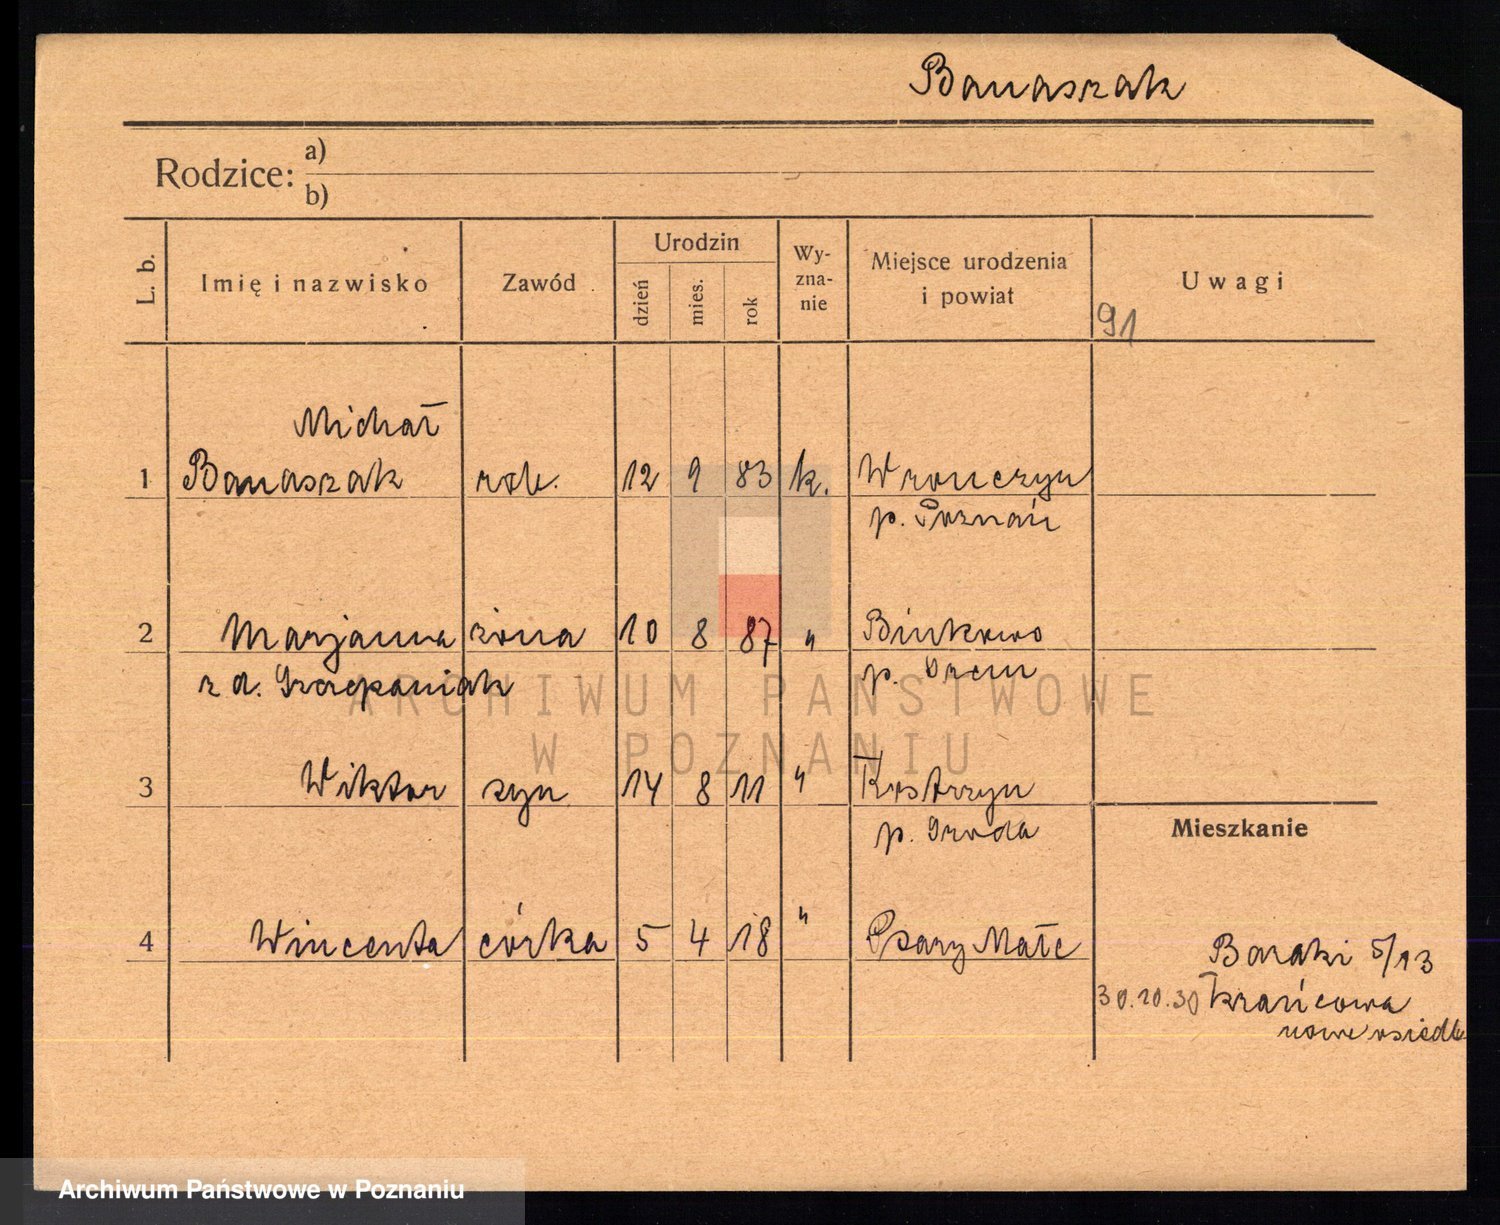 Banaszak
Rodzice: a)
b)
L. b.
Imię i nazwisko
Zawód
Urodzin
dzień
mies.
rok
Wy-
zna-
nie
Miejsce urodzenia
i powiat
Uwagi
91
Michał
1 Banaszak rob. 12 9 83 k. Wronczyn
p. Poznań
2 Marjanna żona 10 8 87 " Binkowo
z d. Szczepaniak p. Śrem
3 Wiktor syn 14 8 11 " Kostrzyn
p. Środa
Mieszkanie
4 Wincenta córka 5 4 18 " Psary Małe
Baraki 5/13
30.10.30 Krańcowa
nowe osiedle
ARCHIWUM PAŃSTWOWE
W POZNANIU
Archiwum Państwowe w Poznaniu